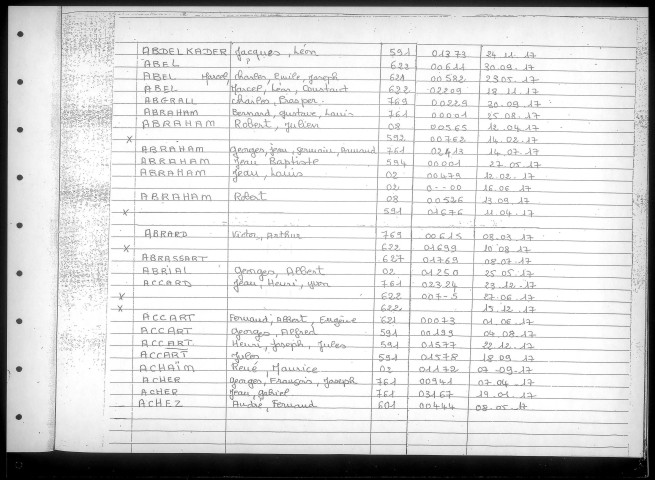 ABDELKADER Jacques, Léon 591 01373 24.11.17
ABEL 623 00611 30.09.17
ABEL Marcel, Charles, Emile, Joseph 621 00582 23.05.17
ABEL Marcel, Léon, Constant 622 02209 18.11.17
ABGRALL Charles, Prosper. 769 00229 30.09.17
ABRAHAM Bernard, Gustave, Louis 761 00001 25.08.17
ABRAHAM Robert, Julien 08 00565 12.04.17
x 592 00762 14.02.17
ABRAHAM Georges, Jean, Germain, Armand 761 02413 14.07.17
ABRAHAM Jean Baptiste 594 00001 27.05.17
ABRAHAM Jean, Louis 02 00479 12.02.17
02 0--00 16.06.17
ABRAHAM Robert 08 00526 13.09.17
x 591 01676 11.04.17
ABRARD Victor, Arthur 769 00615 08.03.17
x 622 01699 10.08.17
ABRASSART 627 01769 08.07.17
ABRIAL Georges, Albert 02 01250 25.05.17
ACCARD Jean, Henri, Yvon 761 02324 23.12.17
x 622 007-5 27.06.17
x 622 15.12.17
ACCART Fernand, Albert, Eugène 621 00073 01.06.17
ACCART Georges, Alfred 591 00199 04.08.17
ACCART Henri, Joseph, Jules 591 01577 22.12.17
ACCART Jules 591 01578 18.09.17
ACHAÏM René, Maurice 02 01172 07.09.17
ACHER Georges, François, Joseph 761 00941 07.04.17
ACHER Jean, Gabriel 761 03167 19.01.17
ACHEZ André, Fernand 601 00444 08.05.17